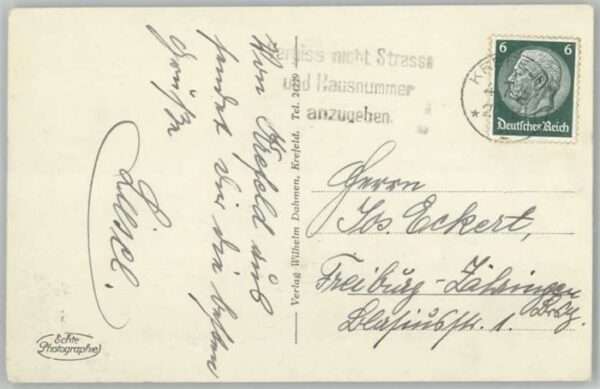 Von Krefeld aus
sendet dir die besten
Grüße
Liesel.
Echte
Photographie
Verlag Wilhelm Dahmen, Krefeld, Tel. 20229
Vergiss nicht Strasse
und Hausnummer
anzugeben.
6 6
Deutsches Reich
Herrn
Jos. Eckert,
Freiburg-Zähringen
Brsg.
Blasiusstr. 1.